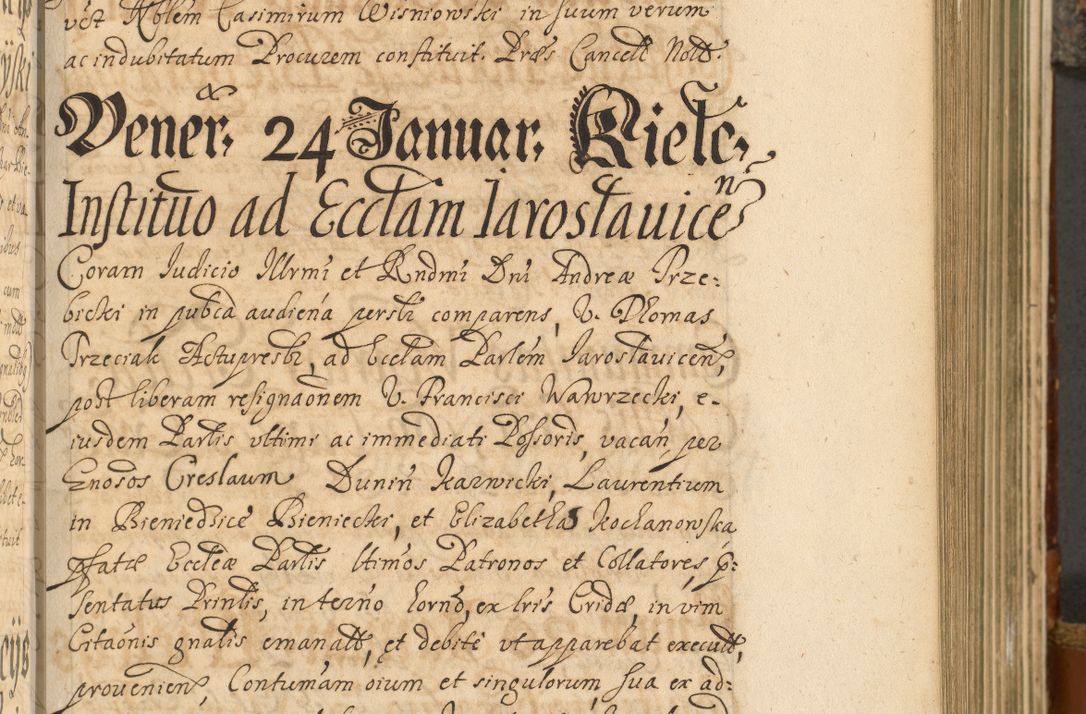 vct Noblem Casimirum Wisniowski in suum verum
ac indubitatum Procurem constituit. Præs Cancell Nott.
Vener. 24 Januar. Kielc.
Institutio ad Ecclam Iarosłavicen
Coram Iudicio Illrmi et Rndmi Dni Andreæ Trze:
bicki in publca audiena persli comparens, V. Thomas
Trzeciak Actupresbr, ad Ecclam Parlem Iarosłavicen,
post liberam resignaonem V. Francisci Wawrzecki, e-
iusdem Parlis vltimi ac immediati Possoris, vacan, per
Gnosos Creslaum Dunin Karwicki, Laurentium
in Bieniedzice Bieniecki, et Elizabetha Kochanowska
pfatæ Eccleæ Parlis ltimos Patronos et Collatores, p:
sentatus Prinlis, in terno horno, ex lris Cridæ, in vim
Citaonis gnalis emanatt, et debite vt apparebat executt,
provenien, Contumam oium et singulorum, sua ex ad: